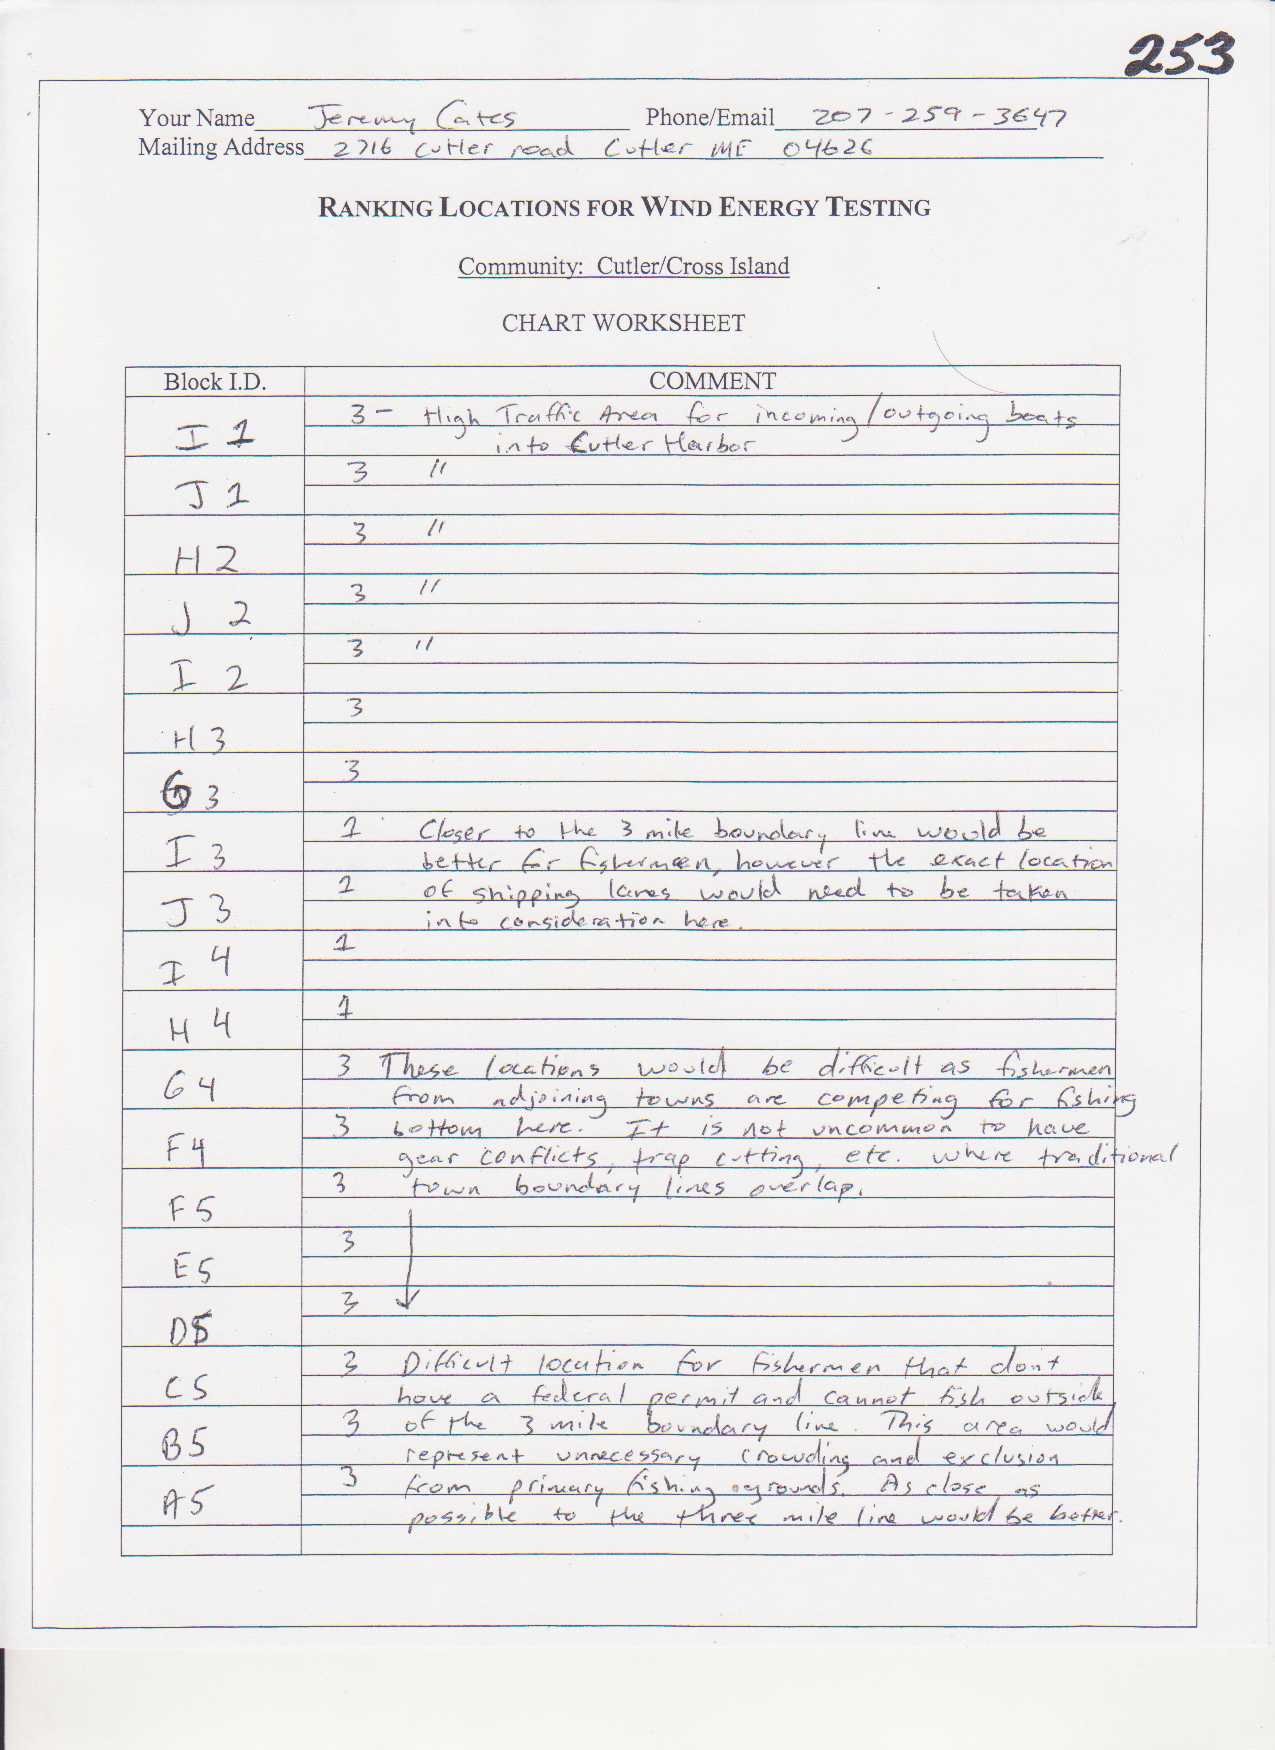 253
Your Name Jeremy Cates Phone/Email 207-259-3647
Mailing Address 2716 Cutler road Cutler ME 04626
RANKING LOCATIONS FOR WIND ENERGY TESTING
Community: Cutler/Cross Island
CHART WORKSHEET
Block I.D. COMMENT
I 1 3 - High Traffic Area for incoming/outgoing boats
into Cutler Harbor
J 1 3 "
H 2 3 "
J 2 3 "
I 2 3 "
H 3 3
G 3 3
I 3 1 Closer to the 3 mile boundary line would be
better for fishermen, however the exact location
J 3 1 of shipping lanes would need to be taken
into consideration here.
I 4 1
H 4 1
G 4 3 These locations would be difficult as fishermen
from adjoining towns are competing for fishing
F4 3 bottom here. It is not uncommon to have
gear conflicts, trap cutting, etc. where traditional
F5 3 town boundary lines overlap.
E5 3
D5 3
C5 3 Difficult location for fishermen that dont
have a federal permit and cannot fish outside
B5 3 of the 3 mile boundary line. This area would
represent unnecessary crowding and exclusion
A5 3 from primary fishing grounds. As close as
possible to the three mile line would be better.